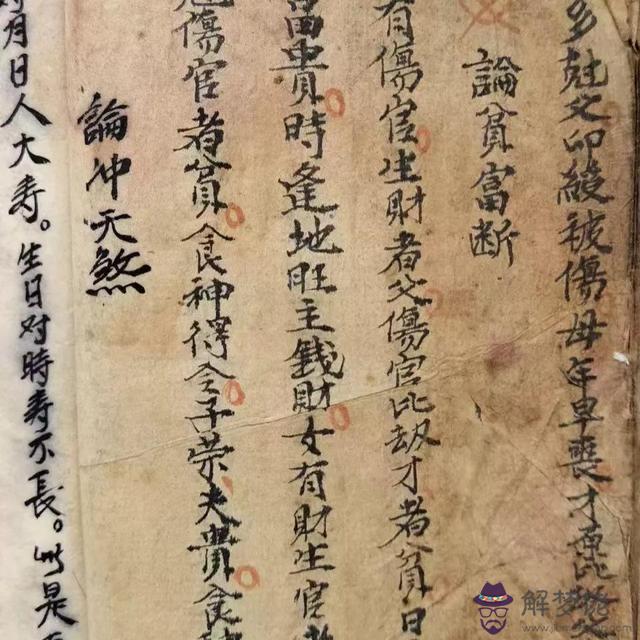 多尅父印綬被傷母年早喪才
論貧富断
有傷官生財者父傷官比劫才者貧日
富貴時逢地旺主錢財女有財生官者
傷官者貧食神得令子榮夫貴食
論冲天煞
月日人大寿。生日对時寿不長。此是
解梦佬